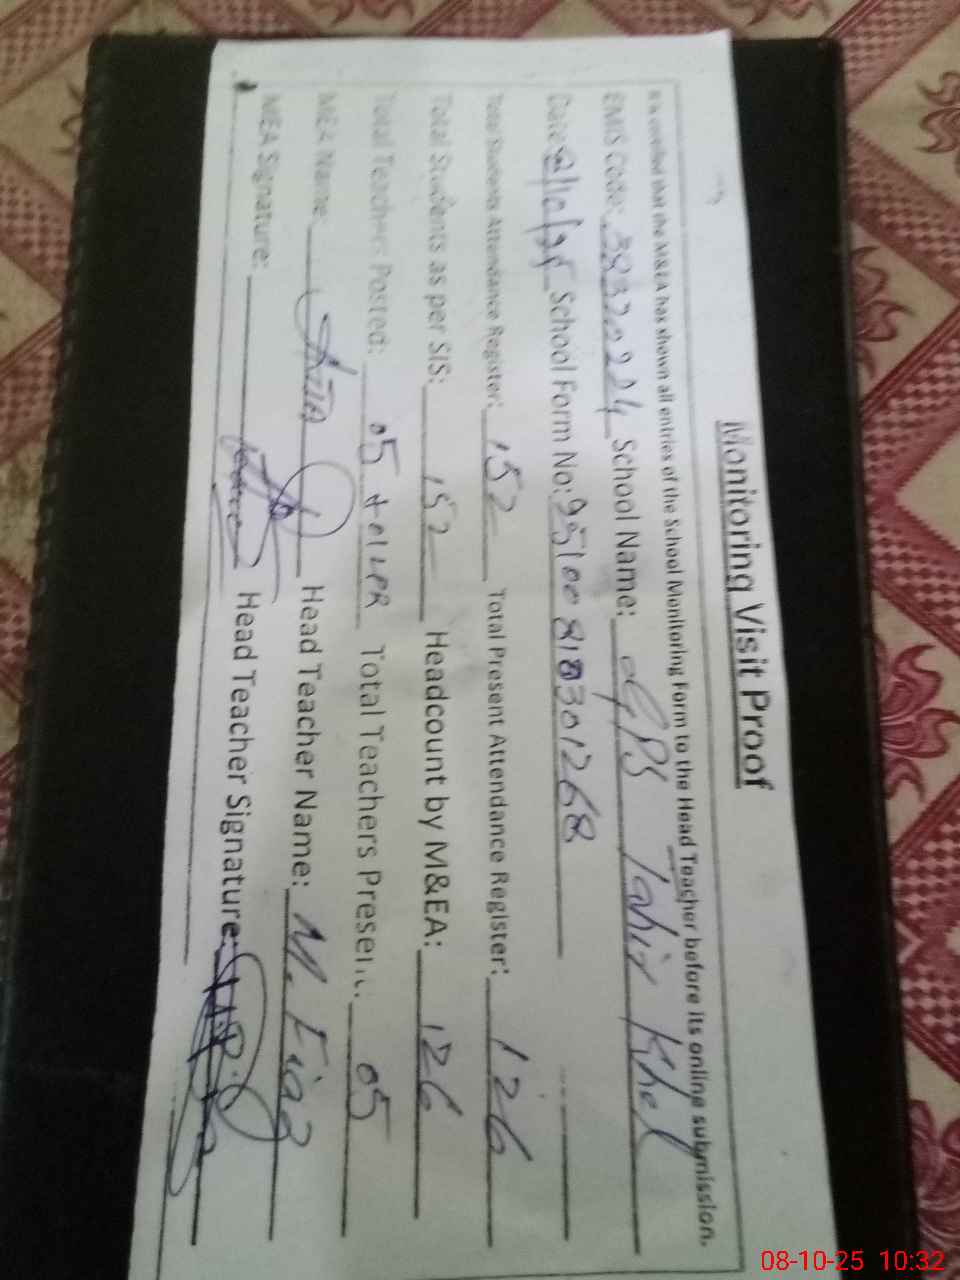 Monitoring Visit Proof
It is certified that the M&EA has shown all entries of the School Monitoring Form to the Head Teacher before its online submission.
EMIS Code: 38320224 School Name: GPS Tahir Khel
Date: 8/10/25 School Form No: 95100818301268
Total Students Attendance Register: 152 Total Present Attendance Register: 126
Total Students as per SIS: 152 Headcount by M&EA: 126
Total Teachers Posted: 05 + 01 LPR Total Teachers Present: 05
MEA Name: Head Teacher Name: M.
MEA Signature: Head Teacher Signature:
08-10-25 10:32